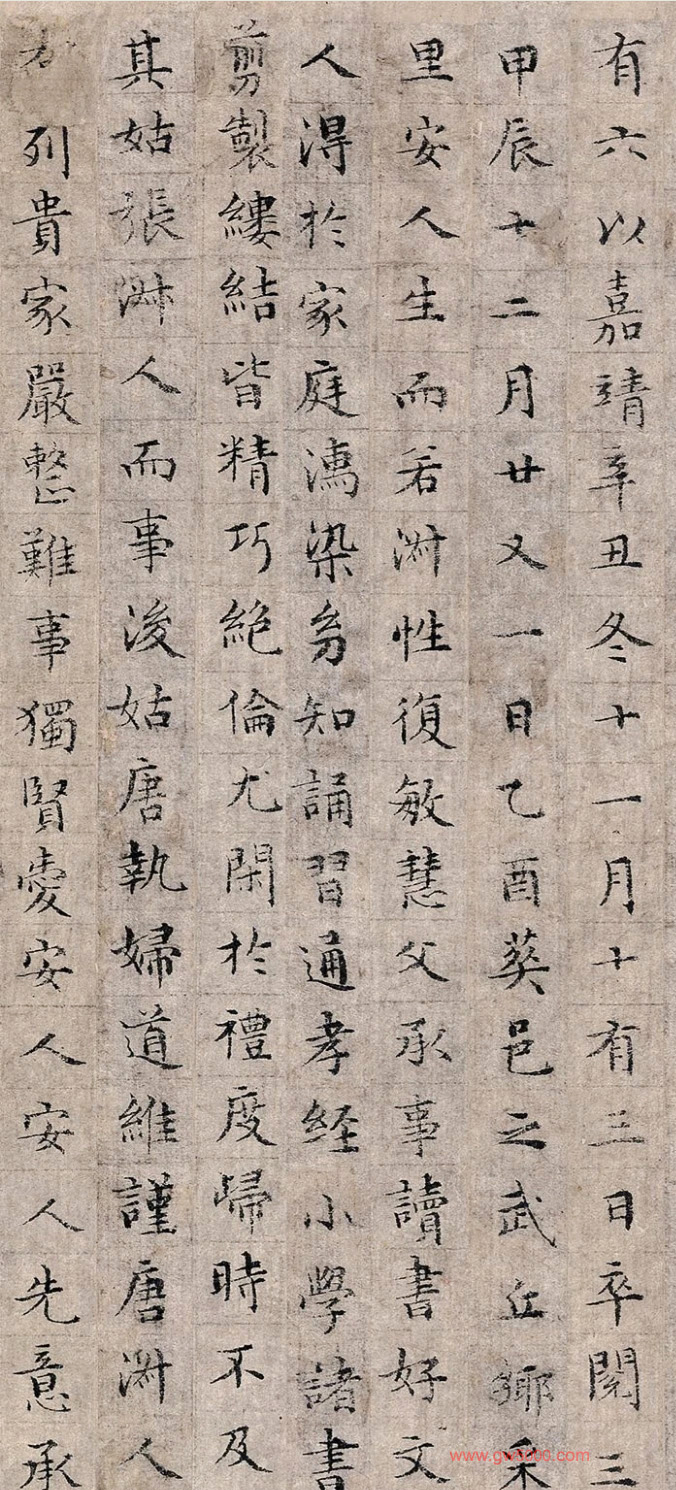 有六以嘉靖辛丑冬十一月十有三日卒閱三
甲辰十二月廿又一日乙酉葬邑之武丘鄉禾
里安人生而若淋性復敏慧父承事讀書好文
人得於家庭濡染多知誦習通孝経小學諸書
剪製縷結皆精巧絕倫尤閑於禮度歸時不及
其姑張淋人而事後姑唐執婦道維謹唐淋人
列貴家嚴整難事獨賢愛安人安人先意承
www.gw8006.com